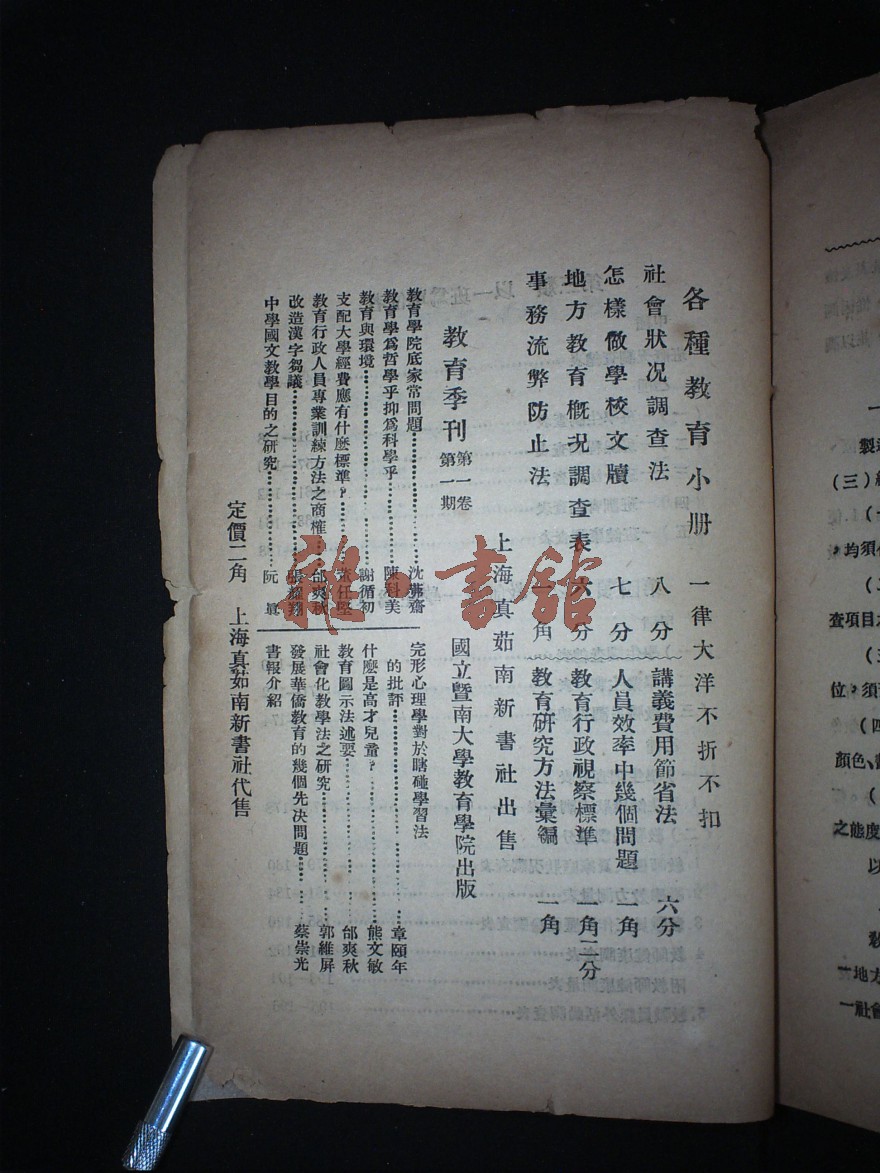 各種教育小册　一律大洋不折不扣
社會狀况調查法　八分　講義費用節省法　六分
怎樣做學校文牘　七分　人員效率中幾個問題　一角
地方教育概况調查表　六分　教育行政視察標準　一角二分
事務流弊防止法　一角　教育研究方法彙編　一角
上海真茹南新書社出售
教育季刊 第一卷 第一期　國立暨南大學教育學院出版
教育學院底家常問題…………沈茀齋
教育學爲哲學乎抑爲科學乎…………陳科美
教育與環境…………謝循初
支配大學經費應有什麽標準?…………張任堅
教育行政人員專業訓練方法之商榷…邰爽秋
改造漢字芻議…………張耀翔
中學國文教學目的之研究…………阮真
完形心理學對於瞎碰學習法
的批評…………章頤年
什麽是高才兒童?…………熊文敏
教育圖示法述要…………邰爽秋
社會化教學法之研究…………郭維屏
發展華僑教育的幾個先决問題…………蔡崇光
書報介紹
定價二角　上海真茹南新書社代售
雜書館
(三)
均須
查項目
位，須
(四
顏色、
之態度
以
一社會